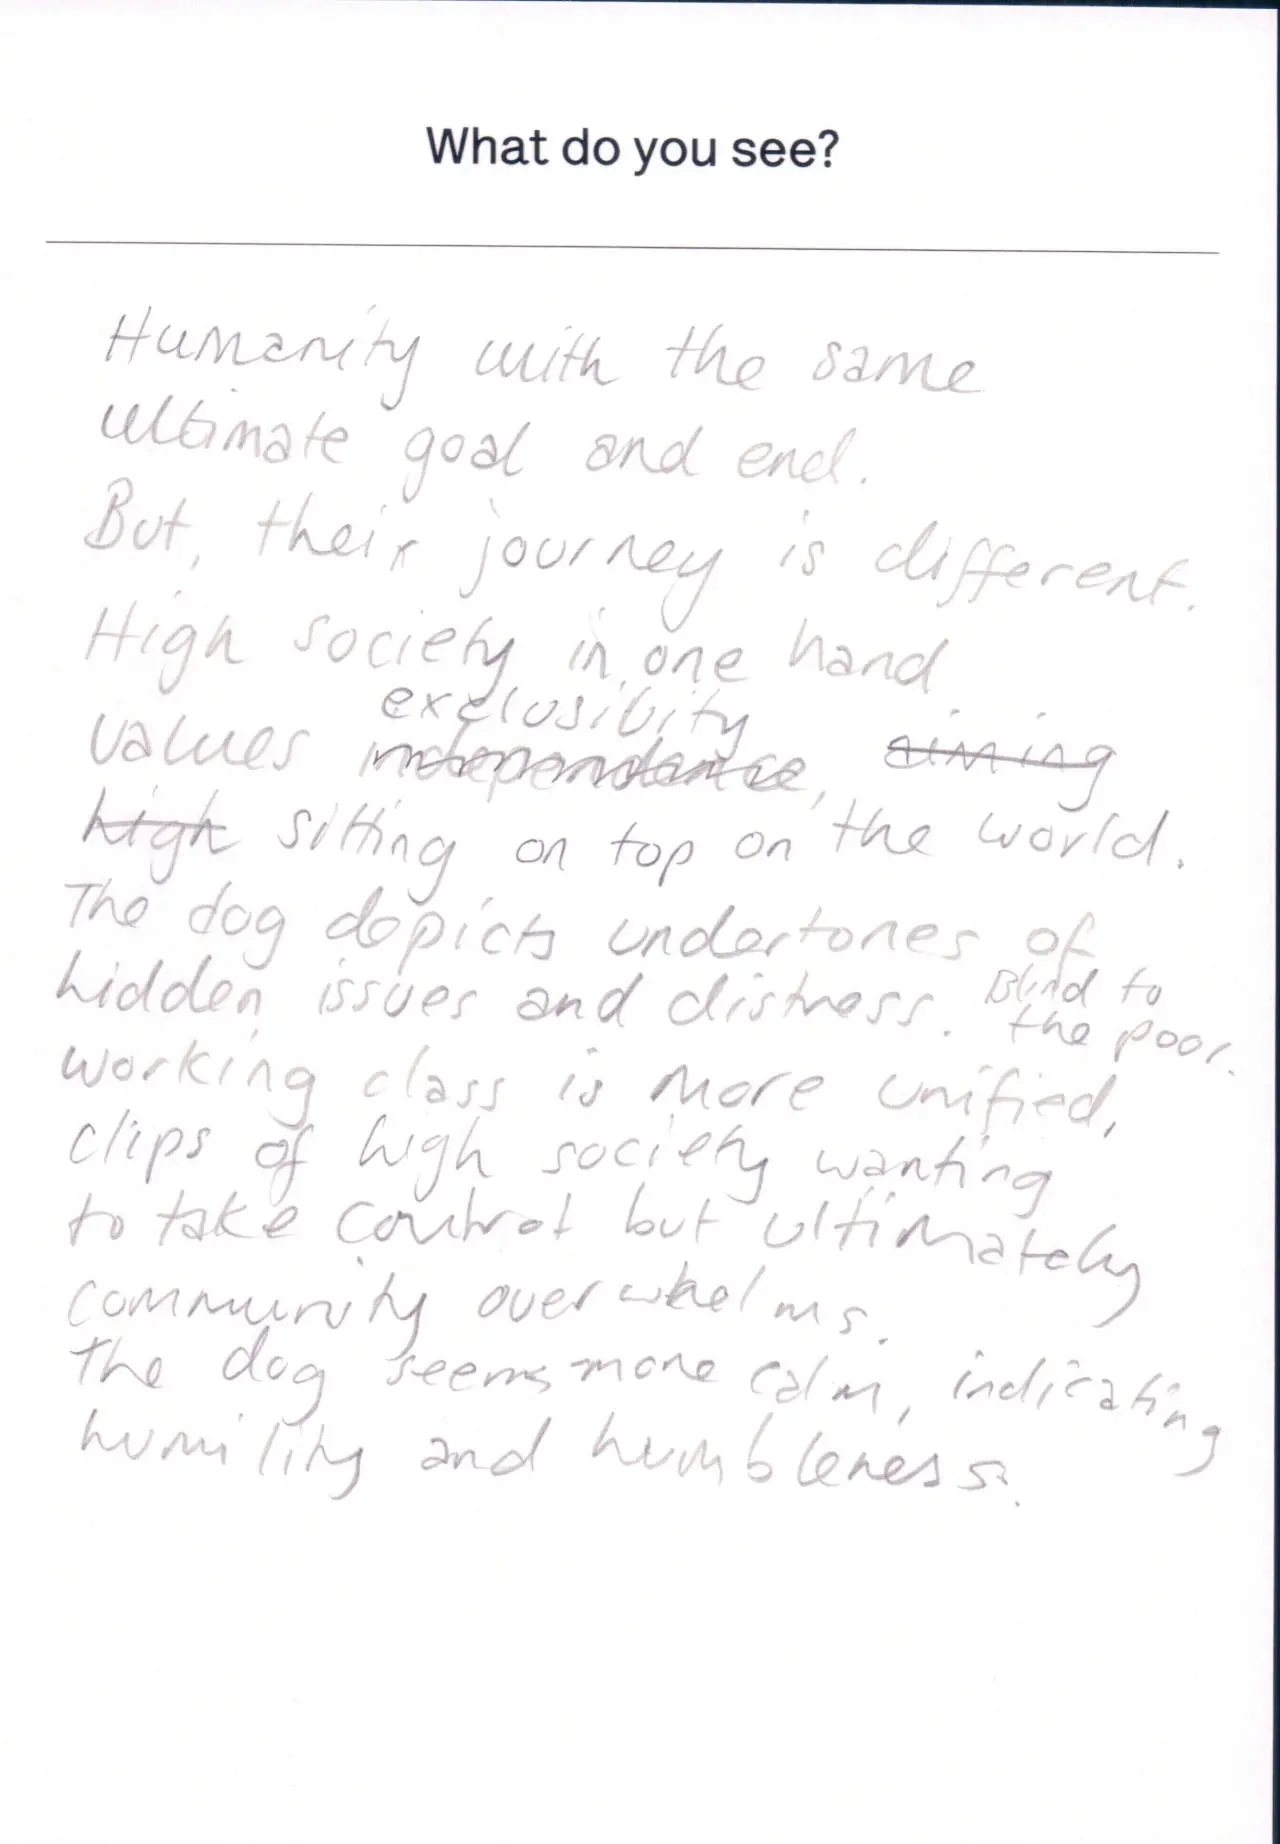 What do you see?
Humanity with the same
ultimate goal and end.
But, their journey is different.
High society in one hand
exclusibity
values independance, aiming
high sitting on top on the world.
The dog depicts undertones of
hidden issues and distress. Blind to
the poor.
working class is more unified,
clips of high society wanting
to take control but ultimately
community overwhelms.
The dog seems more calm, indicating
humility and humbleness.